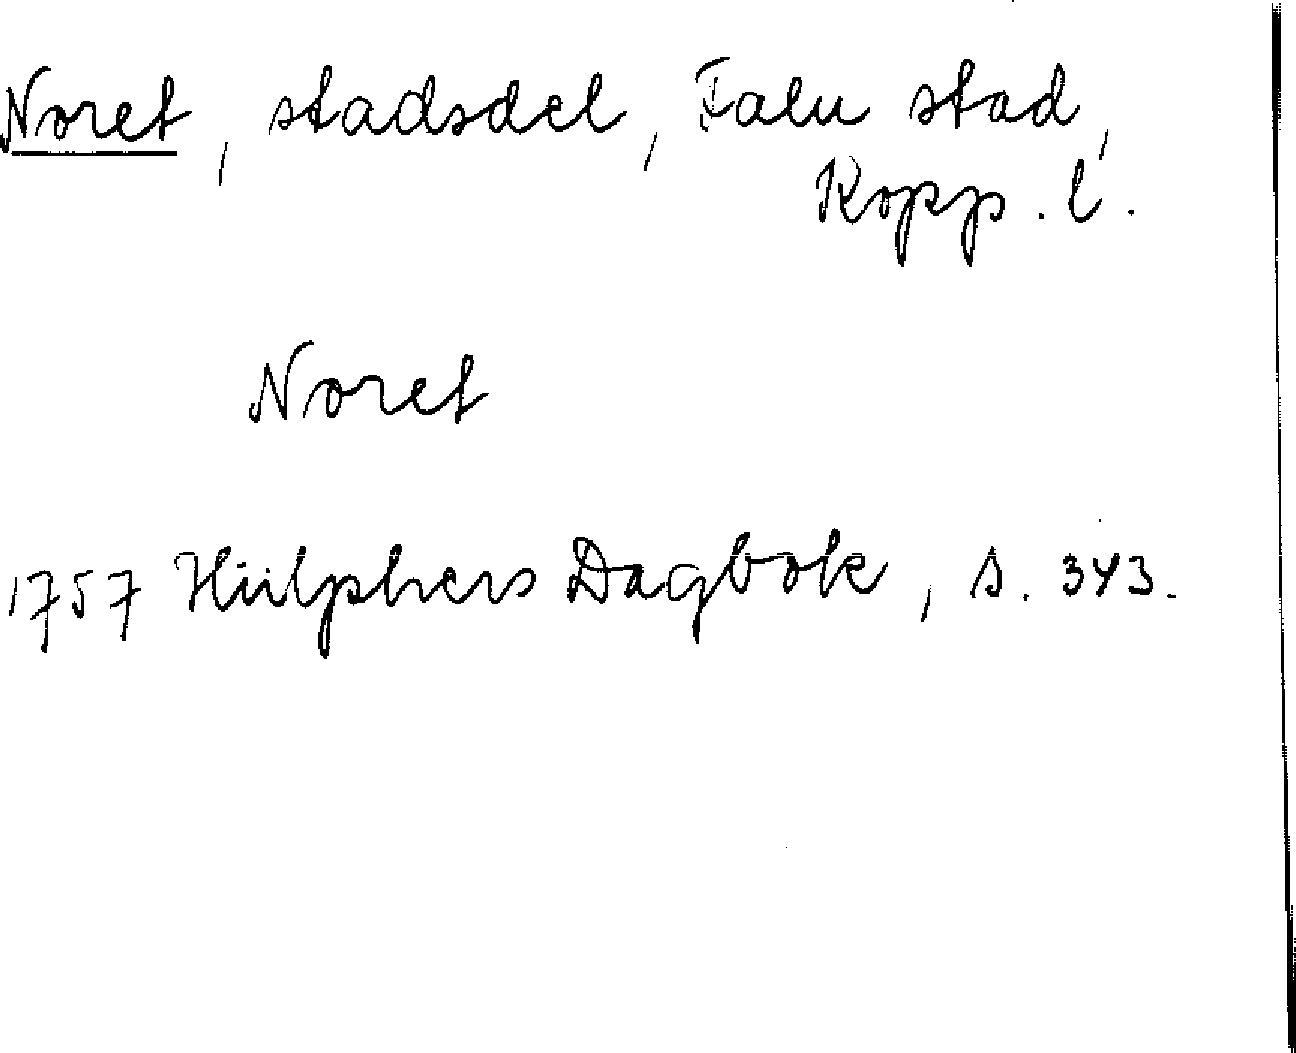 Noret, stadsdel, Falu stad,
Kopp. l.
Noret
1757 Hülphers Dagbok, s. 343.